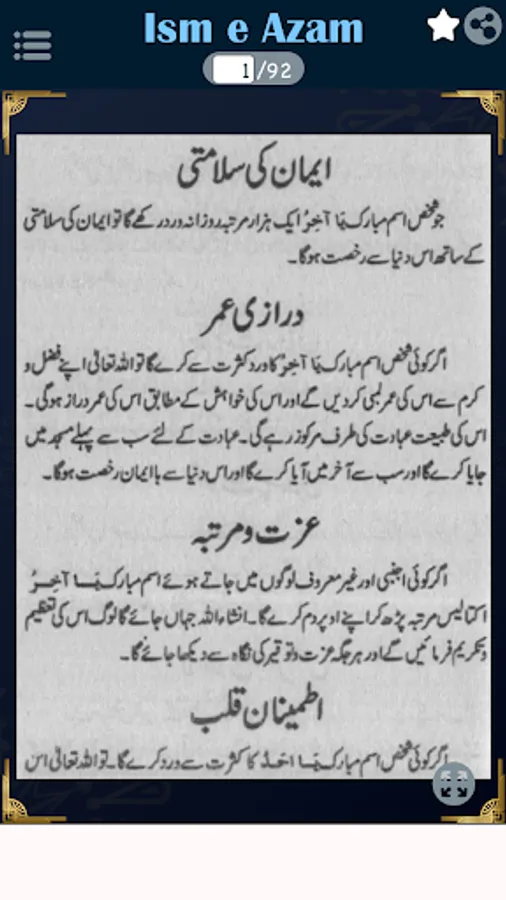 Ism e Azam
1/92
ایمان کی سلامتی
جو شخص اسم مبارک یَا آخِرُ ایک ہزار مرتبہ روزانہ ورد رکھے گا تو ایمان کی سلامتی
کے ساتھ اس دنیا سے رخصت ہوگا۔
درازی عمر
اگر کوئی شخص اسم مبارک یَا آخِرُ کا ورد کثرت سے کرے گا تو اللہ تعالیٰ اپنے فضل و
کرم سے اس کی عمر لمبی کر دیں گے اور اس کی خواہش کے مطابق اس کی عمر دراز ہوگی۔
اس کی طبیعت عبادت کی طرف مرکوز رہے گی۔ عبادت کے لئے سب سے پہلے مسجد میں
جایا کرے گا اور سب سے آخر میں آیا کرے گا اور اس دنیا سے باایمان رخصت ہوگا۔
عزت و مرتبہ
اگر کوئی اجنبی اور غیر معروف لوگوں میں جاتے ہوئے اسم مبارک یَا آخِرُ
اکتالیس مرتبہ پڑھ کر اپنے اوپر دم کرے گا۔ انشاء اللہ جہاں جائے گا لوگ اس کی تعظیم
و تکریم فرمائیں گے اور ہر جگہ عزت و توقیر کی نگاہ سے دیکھا جائے گا۔
اطمینان قلب
اگر کوئی شخص اسم مبارک یَا اَحَدُ کا کثرت سے ورد کرے گا۔ تو اللہ تعالیٰ اس